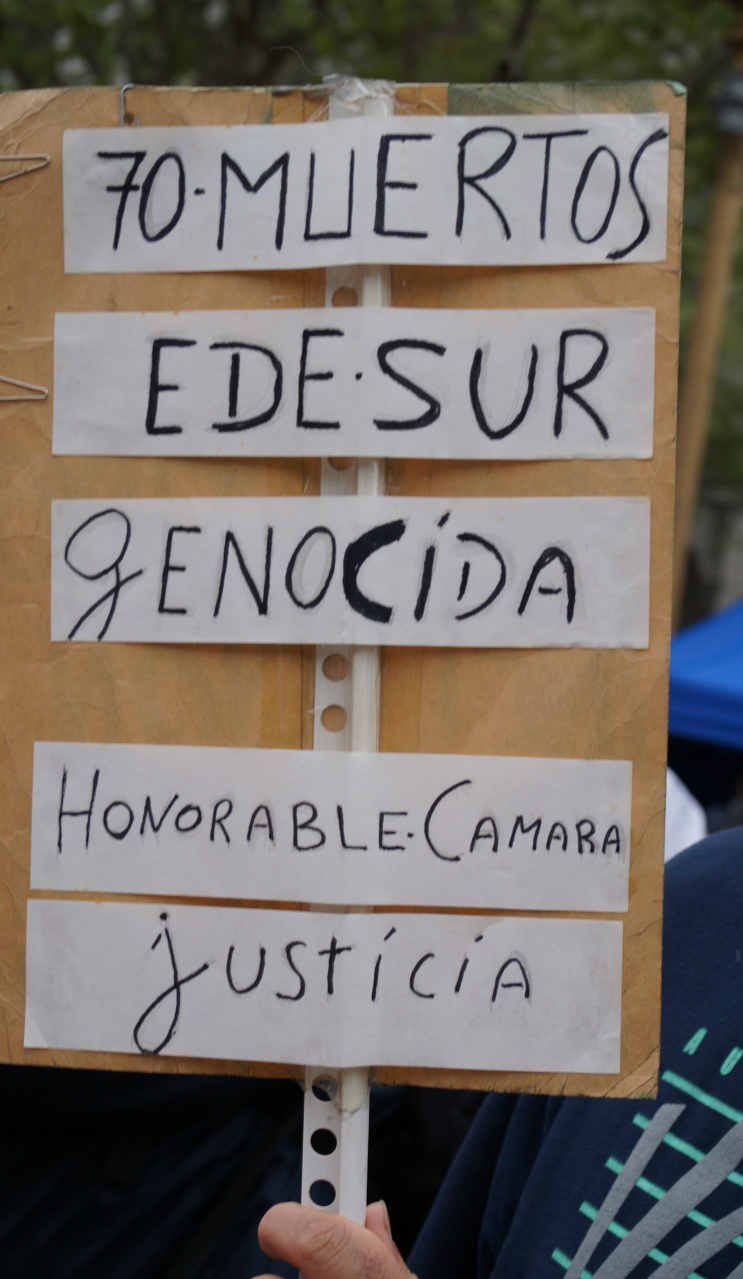 70·MUERTOS
EDE·SUR
GENOCIDA
HONORABLE·CAMARA
jUSTiCiA